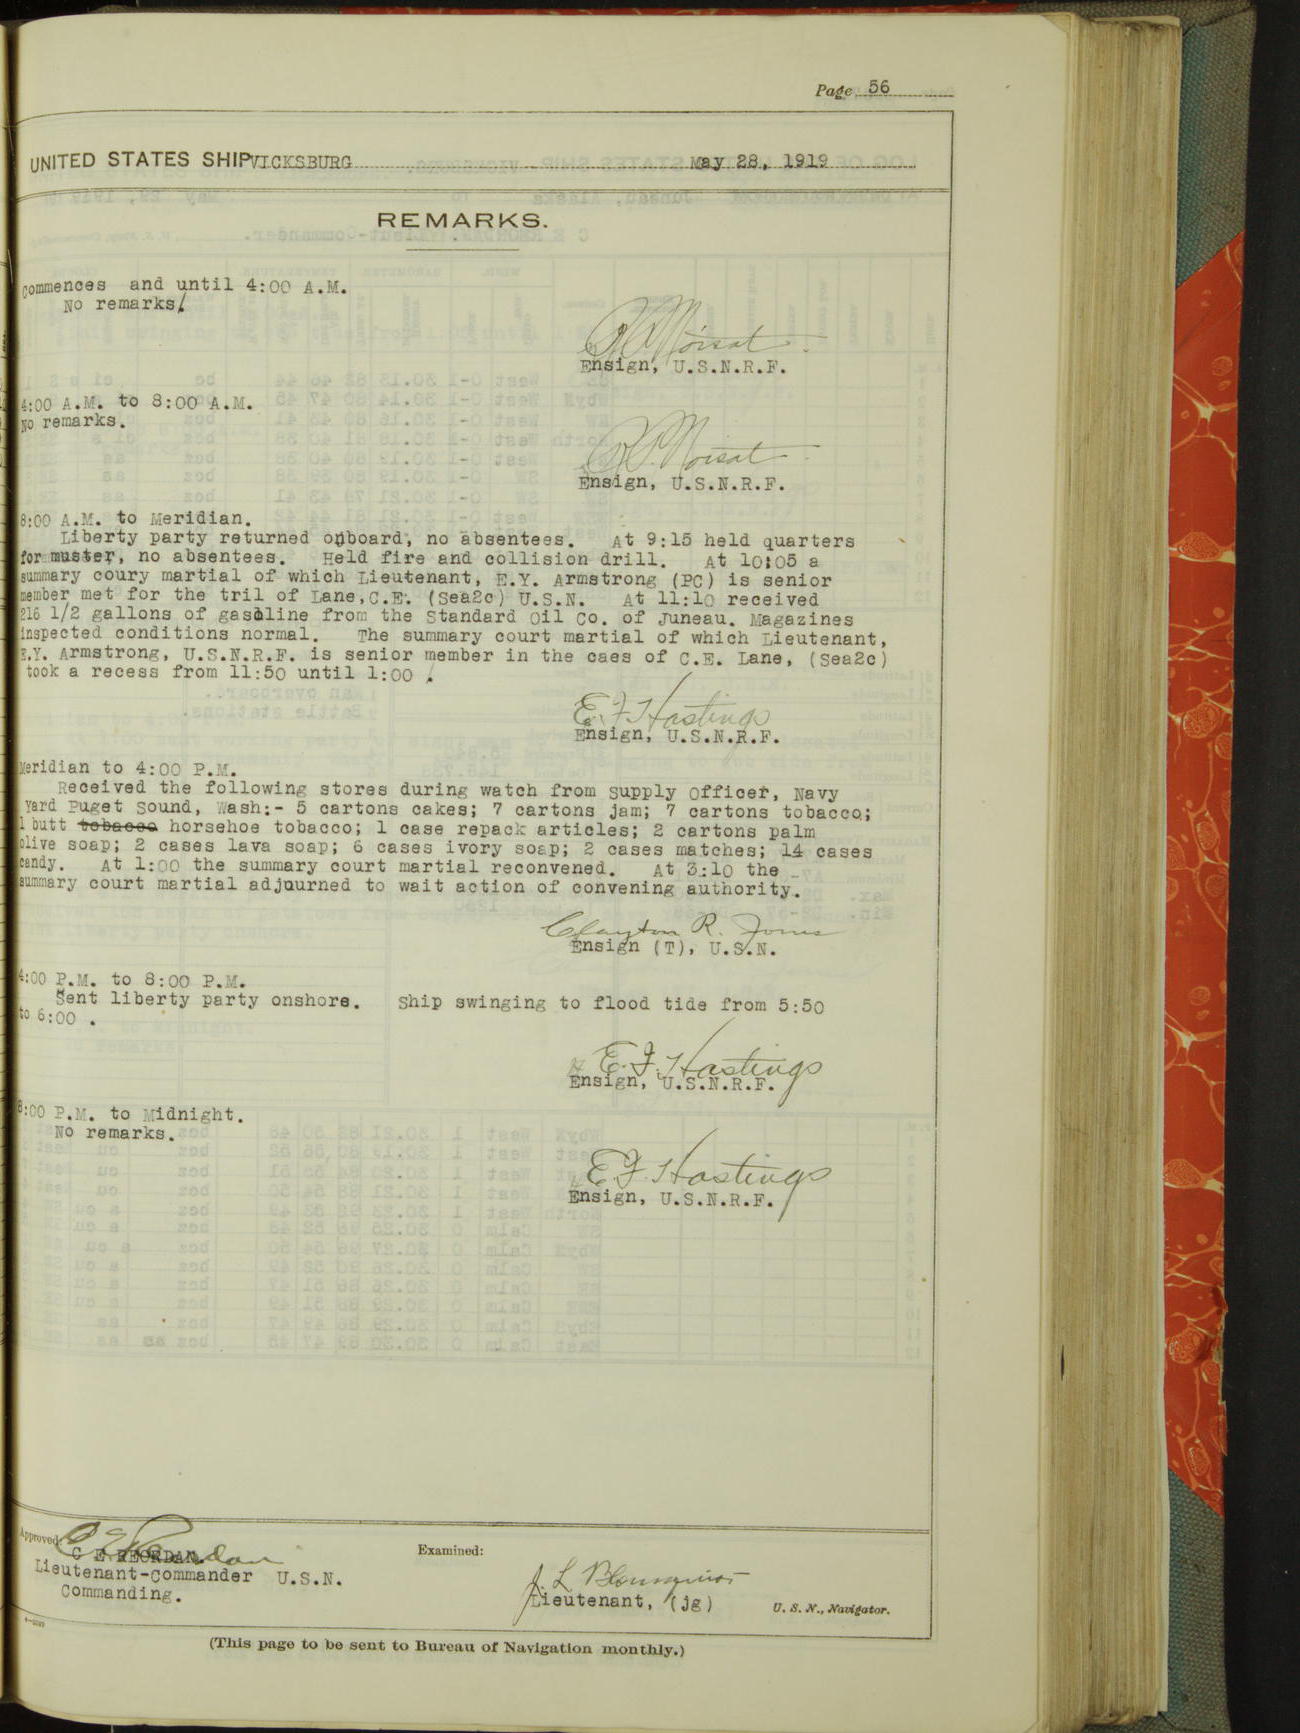 Page 56
UNITED STATES SHIP VICKSBURG May 28, 1919
REMARKS.
Commences and until 4:00 A.M.
No remarks.
Ensign, U.S.N.R.F.
4:00 A.M. to 8:00 A.M.
No remarks.
Ensign, U.S.N.R.F.
8:00 A.M. to Meridian.
Liberty party returned onboard, no absentees. At 9:15 held quarters
for muster, no absentees. Held fire and collision drill. At 10:05 a
summary coury martial of which Lieutenant, E.Y. Armstrong (PC) is senior
member met for the tril of Lane,C.E. (Sea2c) U.S.N. At 11:10 received
216 1/2 gallons of gasoline from the Standard Oil Co. of Juneau. Magazines
inspected conditions normal. The summary court martial of which Lieutenant,
E.Y. Armstrong, U.S.N.R.F. is senior member in the caes of C.E. Lane, (Sea2c)
took a recess from 11:50 until 1:00 .
E.F. Hastings
Ensign, U.S.N.R.F.
Meridian to 4:00 P.M.
Received the following stores during watch from Supply Officer, Navy
Yard Puget Sound, Wash:- 5 cartons cakes; 7 cartons jam; 7 cartons tobacco;
1 butt tobacco horsehoe tobacco; 1 case repack articles; 2 cartons palm
olive soap; 2 cases lava soap; 6 cases ivory soap; 2 cases matches; 14 cases
candy. At 1:00 the summary court martial reconvened. At 3:10 the
summary court martial adjourned to wait action of convening authority.
Clayton R. Jones
Ensign (T), U.S.N.
4:00 P.M. to 8:00 P.M.
Sent liberty party onshore. Ship swinging to flood tide from 5:50
to 6:00 .
E.F. Hastings
Ensign, U.S.N.R.F.
8:00 P.M. to Midnight.
No remarks.
E.F. Hastings
Ensign, U.S.N.R.F.
Approved: Examined:
C E REORDAN.
Lieutenant-Commander U.S.N.
Commanding.
J. L.
Lieutenant, (jg) U. S. N., Navigator.
(This page to be sent to Bureau of Navigation monthly.)